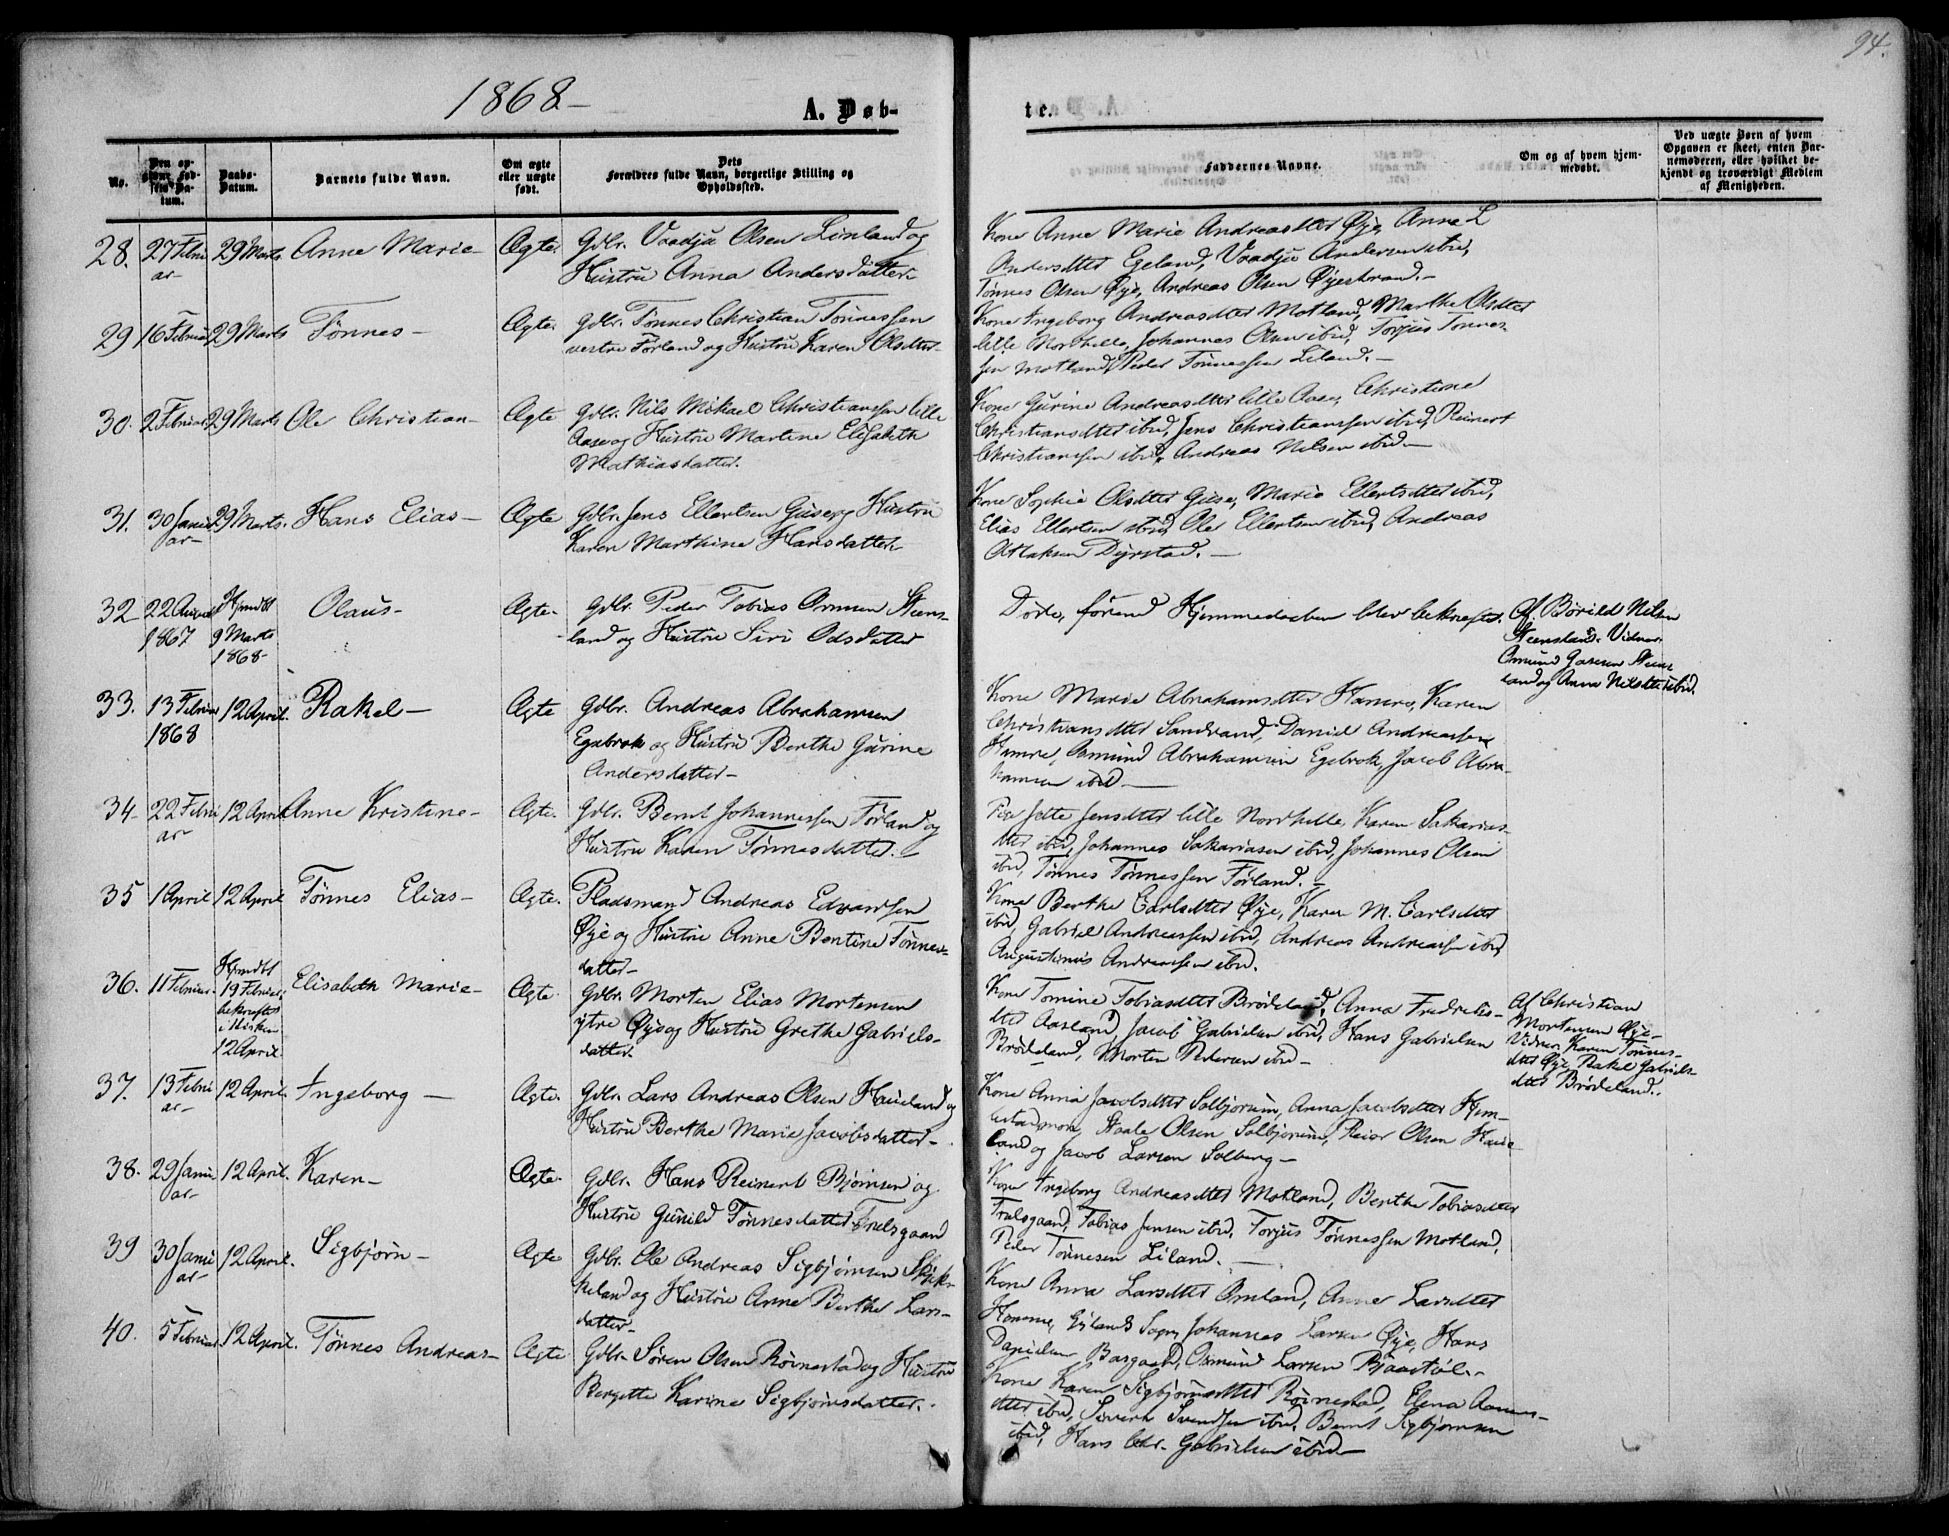 1868-
A. Døb-
te.
94.
No.
Den op-
givne Fød-
sels Da-
tum.
Daabs-
Datum.
Barnets fulde Navn.
Om ægte
eller uægte
født.
Dets
Forældres fulde Navn, borgerlige Stilling og
Opholdssted.
Faddernes Navne.
Om og af hvem hjem-
medøbt.
Ved uægte Børn af hvem
Opgaven er skeet, enten Bar-
nemoderen, eller hvilket be-
kjendt og troværdigt Medlem
af Menigheden.
28. 27 Febru
ar- 29 Marts Anne Marie- Ægte. Gdbr. Vradju Olsen Linland og
Hustru Anna Andersdatter.
Kone Anne Marie Andreasdtter Øye, Anne L
Andersdtter Egeland, Vradju Andersen ibid,
Tønnes Olsen Øye, Andreas Olsen Øyestrand.-
29 16 Februar 29 Marts Tønnes- Ægte. Gdbr. Tønnes Christian Tønnessen
vestre Førland og Hustru Karen Olsdtter
Kone Ingeborg Andreasdtter Motland, Marthe Olsdtter
lille Nordhelle, Johannes Olsen ibid, Torjus Tønnes-
sen Motland, Peder Tønnessen Liland.-
30. 2 Februar 29 Marts Ole Christian- Ægte Gdbr. Nils Mikael Christianssen lille
Aase og Hustru Martine Elisabeth
Mathiasdatter.
Kone Gurine Andreasdtter lille Aase, Christiane
Christiansdtter ibid, Jens Christianssen ibid, Reinert
Christianssen ibid, Andreas Nilsen ibid-
31. 30 Janu
ar- 29 Marts. Hans Elias- Ægte Gdbr. Jens Ellertsen Guse og Hustru
Karen Marthine Hansdatter.
Kone Sophie Olsdtter Guse, Marie Ellertsdtter ibid,
Elias Ellertsen ibid, Ole Ellertsen ibid, Andreas
Atlaksen Dyrstad.-
32 22 August
1867 Hjmdbt
9 Marts
1868- Olaus- Ægte- Gdbr. Peder Tobias Osmunsen Steens-
land og Hustru Siri Odsdatter
Døde, førend Hjemmedaaben blev bekræftet.
Af Børild Nilsen
Steensland. Vidner
Osmund Gasesen Steens
land og Anna Nilsdtter ibid.
33. 13 Februar
1868 12 April. Rakel- Ægte Gdbr. Andreas Abrahamsen
Egebrok og Hustru Berthe Gurine
Andersdatter-
Kone Marie Abrahamsdtter Hamre, Karen
Christiansdtter Sandvand, Daniel Andreassen
Hamre, Osmund Abrahamsen Egebrok, Jacob Abra-
hamsen ibid-
34- 22 Febru
ar 12 April Anne Kristine- Ægte. Gdbr. Bernt Johannessen Førland og
Hustru Karen Tønnesdatter.-
Pige Jette Jensdtter lille Nordhelle, Karen Sakarias-
dtter ibid, Johannes Sakariasen ibid, Johannes Olsen
ibid, Tønnes Tønnessen Førland.-
35 1 April 12 April Tønnes Elias- Ægte. Pladsmand Andreas Edvardsen
Øye og Hustru Anne Bentine Tønnes-
datter-
Kone Berthe Carlsdtter Øye, Karen M. Carlsdtter
ibid, Gabriel Andreassen ibid, Andreas Andreassen ibid,
Augustinus Andreassen ibid.
36. 11 Februar. Hjmdbt
19 Februar,
bekræftet
i Kirken
12 April. Elisabeth Marie- Ægte. Gdbr. Morten Elias Mortensen
ytre Øye og Hustru Grethe Gabriels-
datter.
Kone Tomine Tobiasdtter Brødeland, Anna Fredriks-
dtter Aasland, Jacob Gabrielsen ibid, Hans Gabrielsen
Brødeland, Morten Pedersen ibid-
Af Christian
Mortensen Øye-
Vidner. Karen Tønnes-
dtter Øye, Rakel Gabriels-
dtter Brødeland.
37. 13 Febru
ar- 12 April. Ingeborg- Ægte. Gdbr. Lars Andreas Olsen Haueland og
Hustru Berthe Marie Jacobsdatter-
Kone Anna Jacobsdtter Solbjorum, Anna Jacobsdtter Him-
lestadmon, Staale Olsen Solbjorum, Reier Olsen Haue
land og Jacob Larsen Solberg-
38. 29 Janu
ar- 12 April. Karen- Ægte- Gdbr. Hans Reinert Bjørnsen og
Hustru Gunild Tønnesdatter Frælsgaard
Kone Ingeborg Andreasdtter Motland, Berthe Tobiasdtter
Frælsgaard, Tobias Jensen ibid, Torjus Tønnessen Motland,
Peder Tønnesen Liland.-
39 30 Janu
ar- 12 April. Sigbjørn- Ægte Gdbr. Ole Andreas Sigbjørnsen Skjek-
keland og Hustru Anne Berthe Lars-
datter-
Kone Anna Larsdtter Omland, Anne Larsdtter
Homme, Gylands Sogn, Johannes Larsen Øye, Hans
Danielsen Basgaard, Osmund Larsen Bjaastøl.-
40. 5 Februar 12 April. Tønnes Andreas- Ægte Gdbr- Søren Olsen Rørnestad og Hustru
Bergette Karine Sigbjørnsdatter.
Kone Karen Sigbjørnsdtter Rørnestad, Elena Aanens-
dtter ibid, Sivert Svendsen ibid, Bernt Sigbjørnsen
ibid, Hans Chr. Gabrielsen ibid-